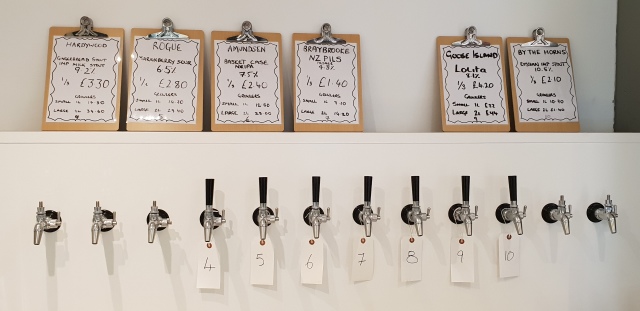 HARDYWOOD
GINGERBREAD STOUT
IMP MILK STOUT
9.2%
1/3 £3.30
GROWLERS
SMALL 1L
LARGE 2L
4
ROGUE
CRANBERRY SOUR
6.5%
1/3 £2.80
GROWLERS
SMALL 1L
LARGE 2L
AMUNDSEN
BASKET CASE
NEIPA
7.5%
1/3 £2.40
GROWLERS
SMALL 1L
LARGE 2L
6
BRAYBROOKE
NZ PILS
1/3 £1.40
GROWLERS
SMALL 1L
LARGE 2L
7
GOOSE ISLAND
LOLITA
1/3 £4.20
GROWLERS
SMALL 1L £22
LARGE 2L £44
BY THE HORNS
IMP STOUT
10.6%
1/3 £2.10
GROWLERS
SMALL 1L
LARGE 2L
10
4
5
6
7
8
9
10